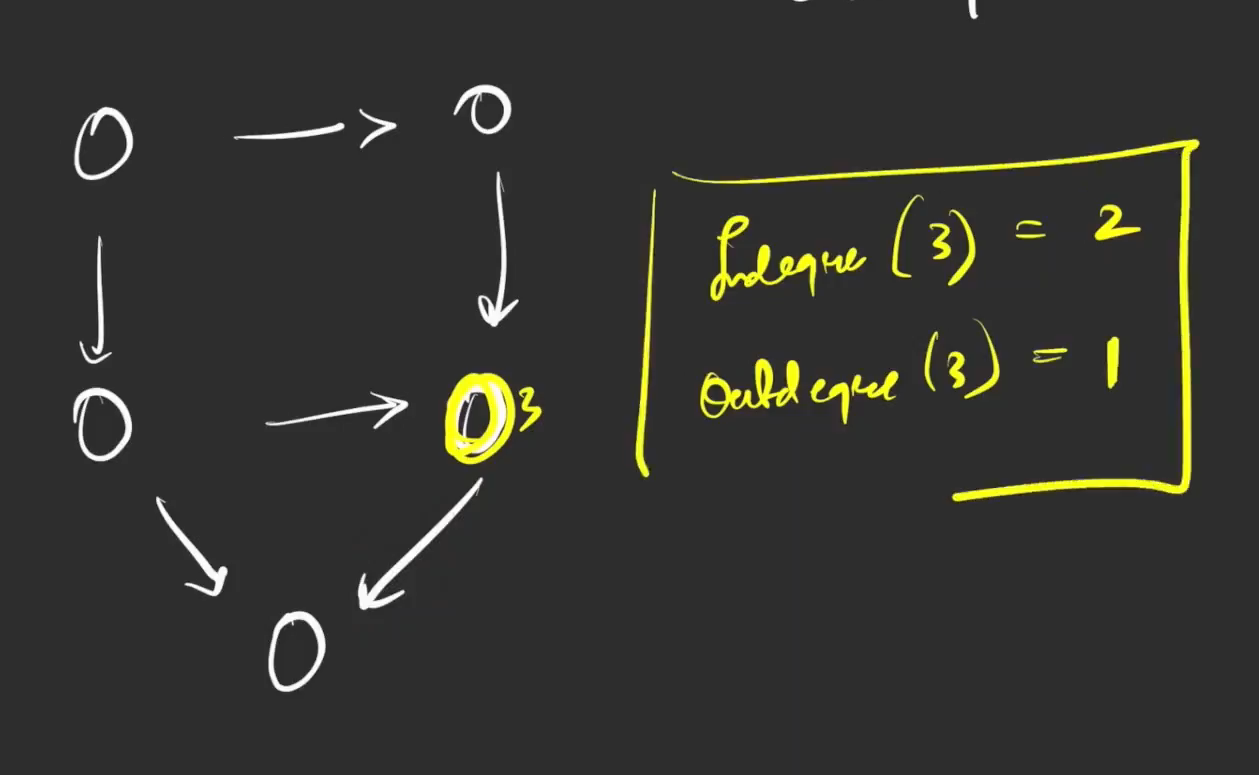 3
Indegree (3) = 2
Outdegree (3) = 1